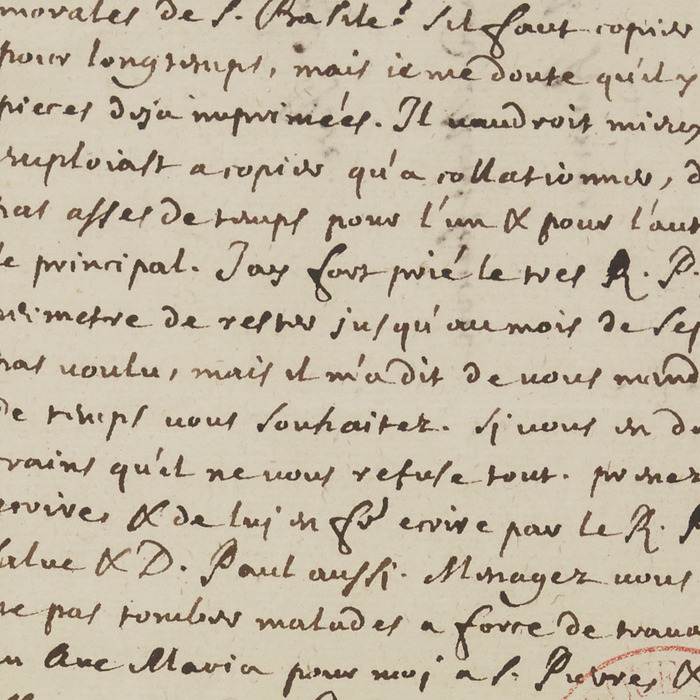 morales de S. Basile? Sil faut copier
pour longtemps, mais ie me doute qu'il y
pieces deja imprimées. Il vaudroit mieux
emploiast a copier qu'a collationner, d
pas asses de temps pour l'un & pour l'aut
le principal. Jay fort prié le tres R. P.
mettre de rester jusqu'au mois de Sep
pas voulu, mais il m'a dit de vous mand
de temps vous souhaitez. Si vous en de
crains qu'il ne vous refuse tout. prenez
ecrire & de luj en fre ecrire par le R. P
salue & D. Paul aussi. Menagez vous
ne pas tomber malades a force de trava
un Ave Maria pour moi a S. Pierre &